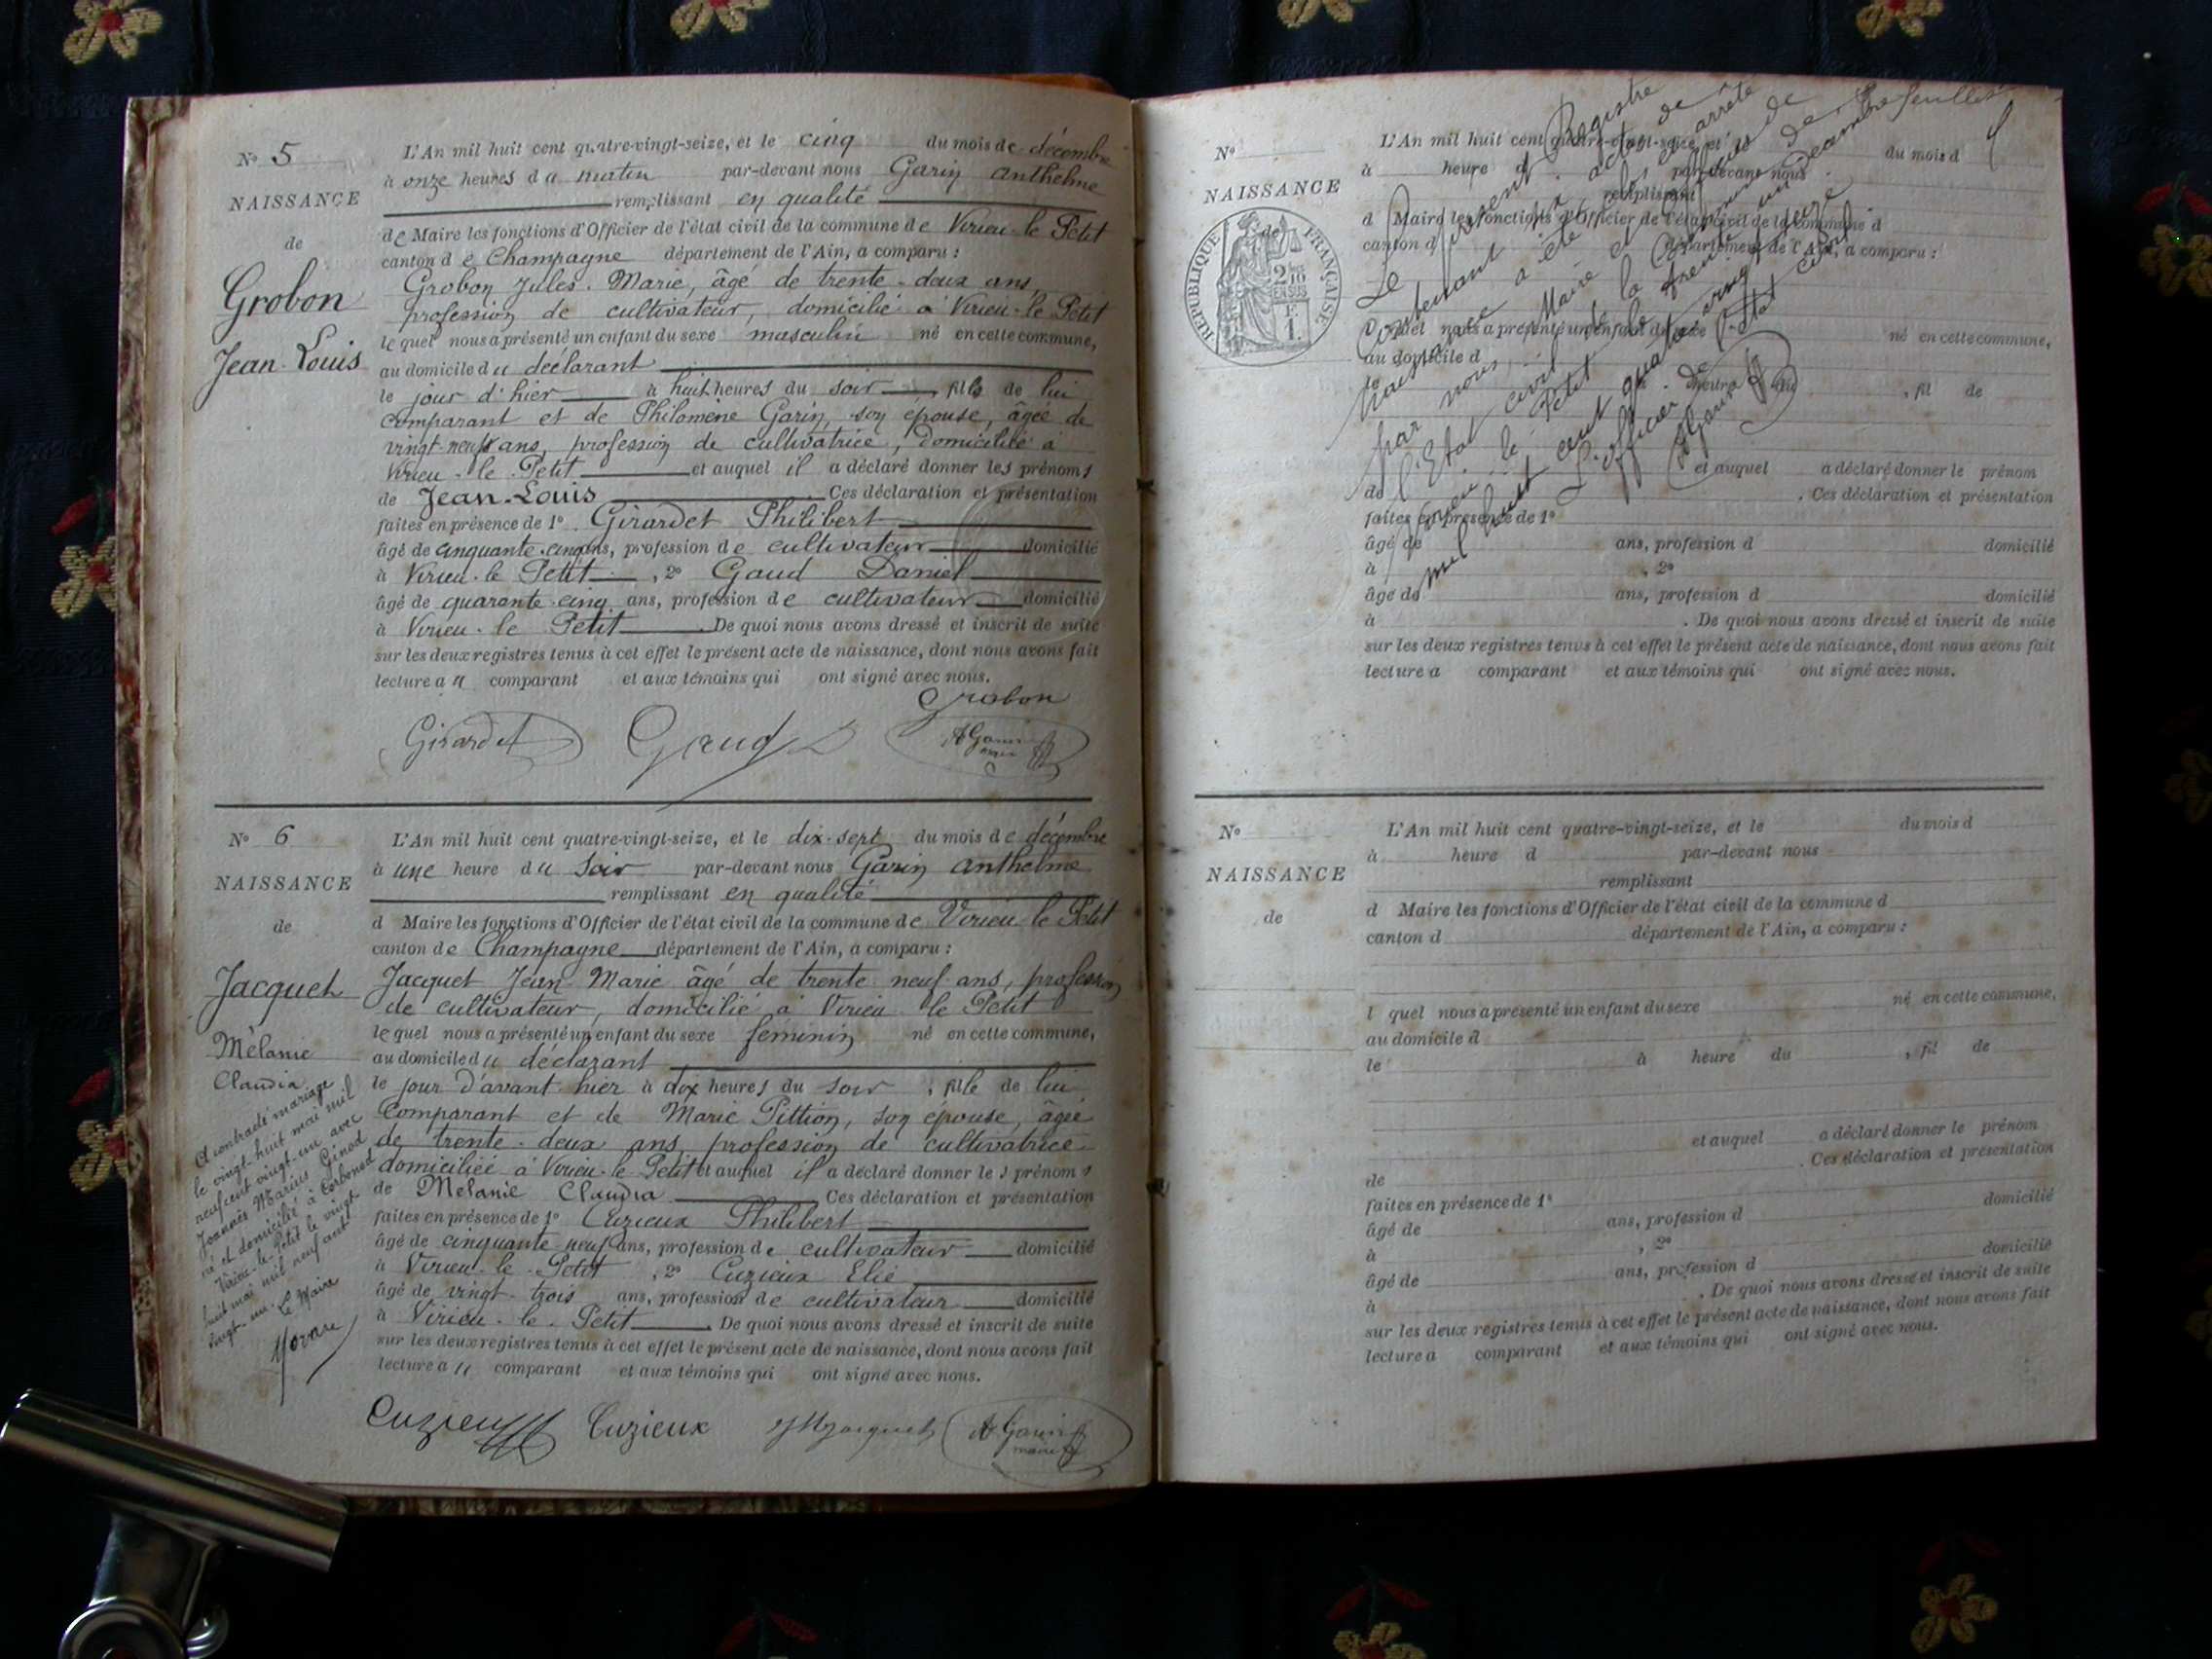 Nº 5
NAISSANCE
de
Grobon
Jean-Louis
L'An mil huit cent quatre-vingt-seize, et le cinq du mois de décembre
à onze heures du matin par-devant nous Garin Anthelme
remplissant en qualité
de Maire les fonctions d'Officier de l'état civil de la commune de Virieu-le-Petit
canton de Champagne département de l'Ain, a comparu :
Grobon Jules-Marie, âgé de trente-deux ans,
profession de cultivateur, domicilié à Virieu-le-Petit
lequel nous a présenté un enfant du sexe masculin né en cette commune,
au domicile du déclarant
le jour d'hier à huit heures du soir fils de lui
comparant et de Philomène Garin, son épouse, âgée de
vingt-neuf ans, profession de cultivatrice, domiciliée à
Virieu-le-Petit et auquel il a déclaré donner les prénoms
de Jean-Louis Ces déclaration et présentation
faites en présence de 1º Girardet Philibert
âgé de cinquante-cinq ans, profession de cultivateur domicilié
à Virieu-le-Petit, 2º Gaud Daniel
âgé de quarante-cinq ans, profession de cultivateur domicilié
à Virieu-le-Petit. De quoi nous avons dressé et inscrit de suite
sur les deux registres tenus à cet effet le présent acte de naissance, dont nous avons fait
lecture au comparant et aux témoins qui ont signé avec nous.
Grobon
Girardet Gaud A Garin
maire
Nº 6
NAISSANCE
de
Jacquet
Mélanie
Claudia
A contracté mariage
le vingt-huit mai mil
neuf cent vingt-un avec
Joannès Marius Ginod
né et domicilié à Corbonod
Virieu-le-Petit le vingt-
huit mai mil neuf cent
vingt-un. Le Maire
L'An mil huit cent quatre-vingt-seize, et le dix-sept du mois de décembre
à une heure du soir par-devant nous Garin Anthelme
remplissant en qualité
d Maire les fonctions d'Officier de l'état civil de la commune de Virieu-le-Petit
canton de Champagne département de l'Ain, a comparu :
Jacquet Jean Marie âgé de trente neuf ans, profession
de cultivateur, domicilié à Virieu-le-Petit
lequel nous a présenté un enfant du sexe féminin né en cette commune,
au domicile du déclarant
le jour d'avant hier à dix heures du soir, fille de lui
comparant et de Marie Pittion, son épouse, âgée
de trente-deux ans, profession de cultivatrice
domiciliée à Virieu-le-Petit et auquel il a déclaré donner les prénoms
de Mélanie Claudia Ces déclaration et présentation
faites en présence de 1º Cuzieux Philibert
âgé de cinquante neuf ans, profession de cultivateur domicilié
à Virieu-le-Petit, 2º Cuzieux Elie
âgé de vingt-trois ans, profession de cultivateur domicilié
à Virieu-le-Petit. De quoi nous avons dressé et inscrit de suite
sur les deux registres tenus à cet effet le présent acte de naissance, dont nous avons fait
lecture au comparant et aux témoins qui ont signé avec nous.
Cuzieux Cuzieux JM Jacquet A. Garin
maire
Nº
NAISSANCE
de
RÉPUBLIQUE FRANÇAISE
2 10
EN SUS
F.
1.
L'An mil huit cent quatre-vingt-seize, et du mois d
à heure d par-devant nous
remplissant
d Maire les fonctions d'Officier de l'état civil de la commune d
canton d département de l'Ain, a comparu :
l quel nous a présenté un enfant du sexe né en cette commune,
au domicile d
le à heure du , fil de
et auquel a déclaré donner le prénom
de . Ces déclaration et présentation
faites en présence de 1º
âgé de ans, profession d domicilié
à , 2º
âgé de ans, profession d domicilié
à . De quoi nous avons dressé et inscrit de suite
sur les deux registres tenus à cet effet le présent acte de naissance, dont nous avons fait
lecture a comparant et aux témoins qui ont signé avec nous.
Le présent Registre
contenant six actes de
naissance a été clos et arrêté
par nous, Maire et officier de
l'Etat civil de la Commune de
Virieu-le-Petit le trente un Décembre
mil huit cent quatre vingt seize
L'officier de l'état civil
A Garin
Nº
NAISSANCE
de
L'An mil huit cent quatre-vingt-seize, et le du mois d
à heure d par-devant nous
remplissant
d Maire les fonctions d'Officier de l'état civil de la commune d
canton d département de l'Ain, a comparu :
l quel nous a présenté un enfant du sexe né en cette commune,
au domicile d
le à heure du , fil de
et auquel a déclaré donner le prénom
de . Ces déclaration et présentation
faites en présence de 1º
âgé de ans, profession d domicilié
à , 2º
âgé de ans, profession d domicilié
à . De quoi nous avons dressé et inscrit de suite
sur les deux registres tenus à cet effet le présent acte de naissance, dont nous avons fait
lecture a comparant et aux témoins qui ont signé avec nous.